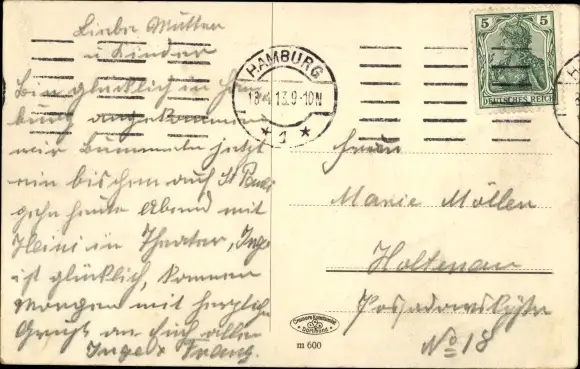 Liebe Mutter
u Kinder
Bin glücklich in Ham
burg angekommen
wir bummeln jetzt
ein bischen auf St Pauli
gehn heute Abend mit
Heini in Theater, Inge
ist glücklich, kommen
Morgen mit herzliche
Gruß an Euch allen
Inge u Franz.
HAMBURG
13.9-10N
* 1 *
5 5
DEUTSCHES REICH
Frau
Marie Möller
Holtenau
No 18
Dortmund
m 600